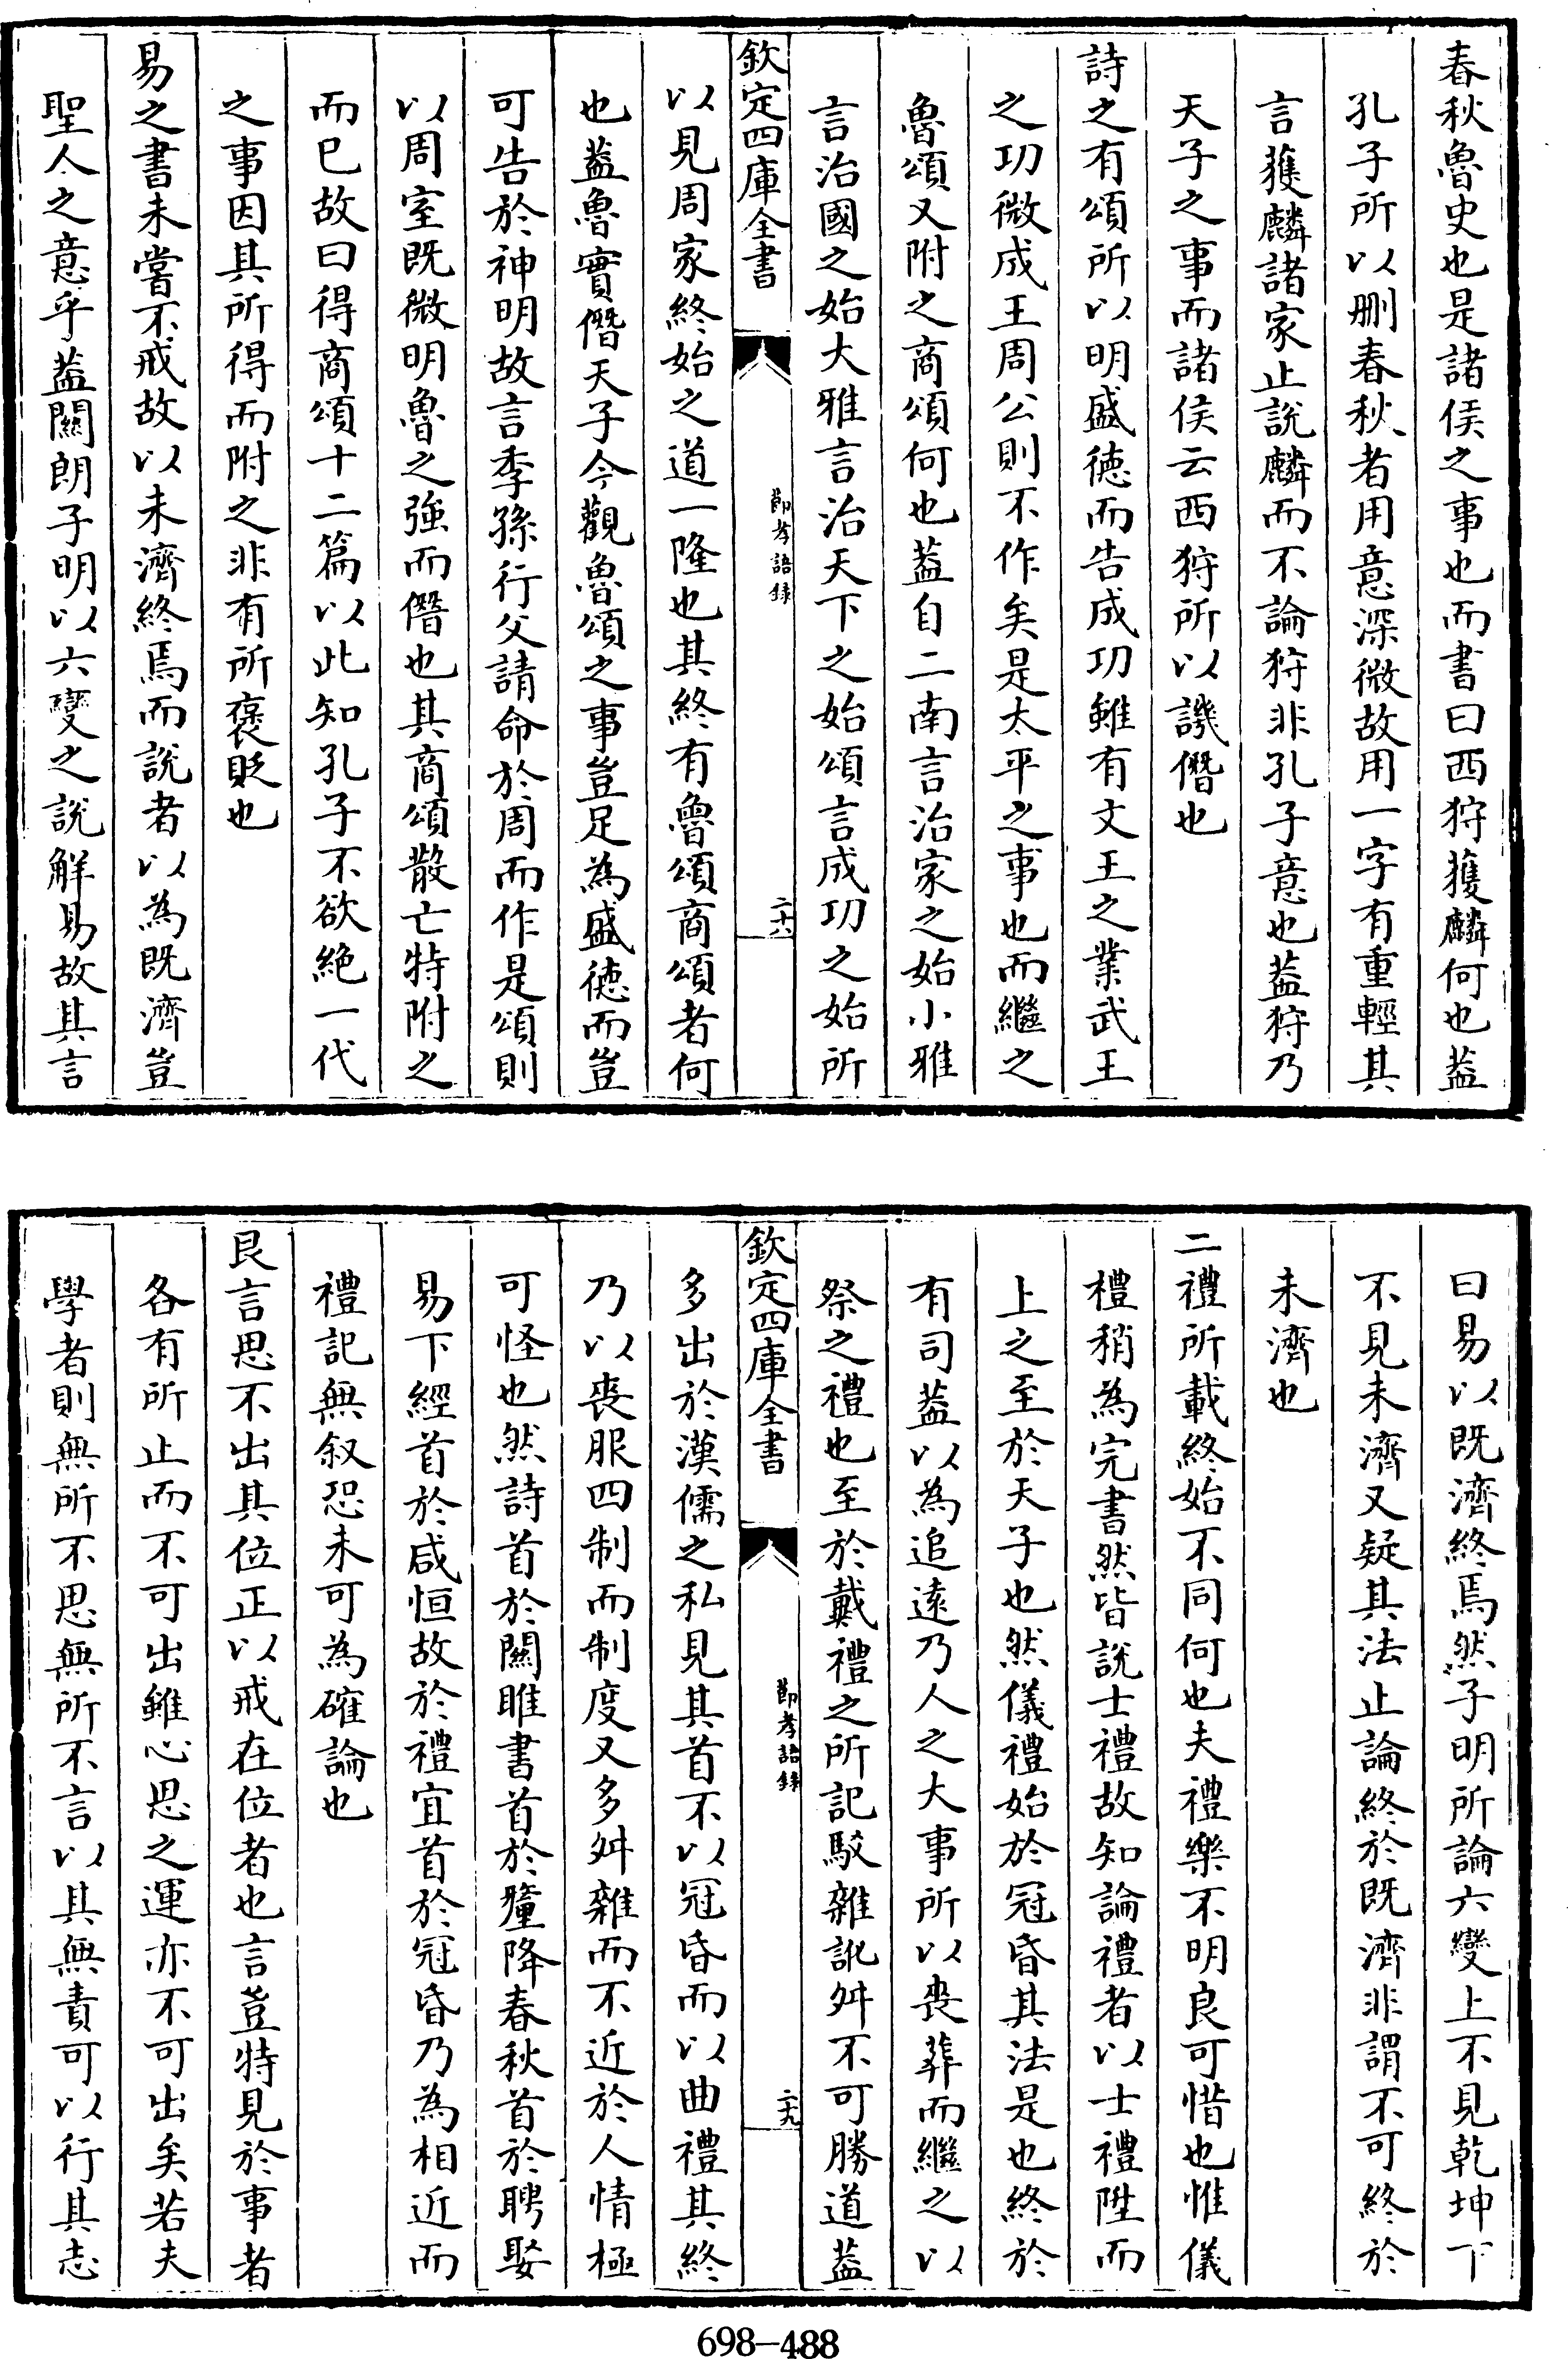 春秋魯史也是諸侯之事也而書曰西狩獲麟何也葢
孔子所以刪春秋者用意深微故用一字有重輕其
言獲麟諸家止說麟而不論狩非孔子意也葢狩乃
天子之事而諸侯云西狩所以譏僭也
詩之有頌所以明盛徳而告成功雖有文王之業武王
之功微成王周公則不作矣是太平之事也而繼之
魯頌又附之商頌何也葢自二南言治家之始小雅
言治國之始大雅言治天下之始頌言成功之始所
欽定四庫全書
節孝語録
二十八
以見周家終始之道一隆也其終有魯頌商頌者何
也葢魯實僭天子今觀魯頌之事豈足為盛徳而豈
可告於神明故言季孫行父請命於周而作是頌則
以周室既微明魯之強而僭也其商頌散亡特附之
而已故曰得商頌十二篇以此知孔子不欲絶一代
之事因其所得而附之非有所褒貶也
易之書未嘗不戒故以未濟終焉而說者以為既濟豈
聖人之意乎葢關朗子明以六變之說解易故其言
曰易以既濟終焉然子明所論六變上不見乾坤下
不見未濟又疑其法止論終於既濟非謂不可終於
未濟也
二禮所載終始不同何也夫禮樂不明良可惜也惟儀
禮稍為完書然皆說士禮故知論禮者以士禮陞而
上之至於天子也然儀禮始於冠昏其法是也終於
有司葢以為追逺乃人之大事所以喪葬而繼之以
祭之禮也至於戴禮之所記駮雜訛舛不可勝道葢
欽定四庫全書
節孝語録
二十九
多出於漢儒之私見其首不以冠昏而以曲禮其終
乃以喪服四制而制度又多舛雜而不近於人情極
可怪也然詩首於關雎書首於釐降春秋首於聘娶
易下經首於咸恒故於禮宜首於冠昏乃為相近而
禮記無叙恐未可為確論也
艮言思不出其位正以戒在位者也言豈特見於事者
各有所止而不可出雖心思之運亦不可出矣若夫
學者則無所不思無所不言以其無責可以行其志
698-488